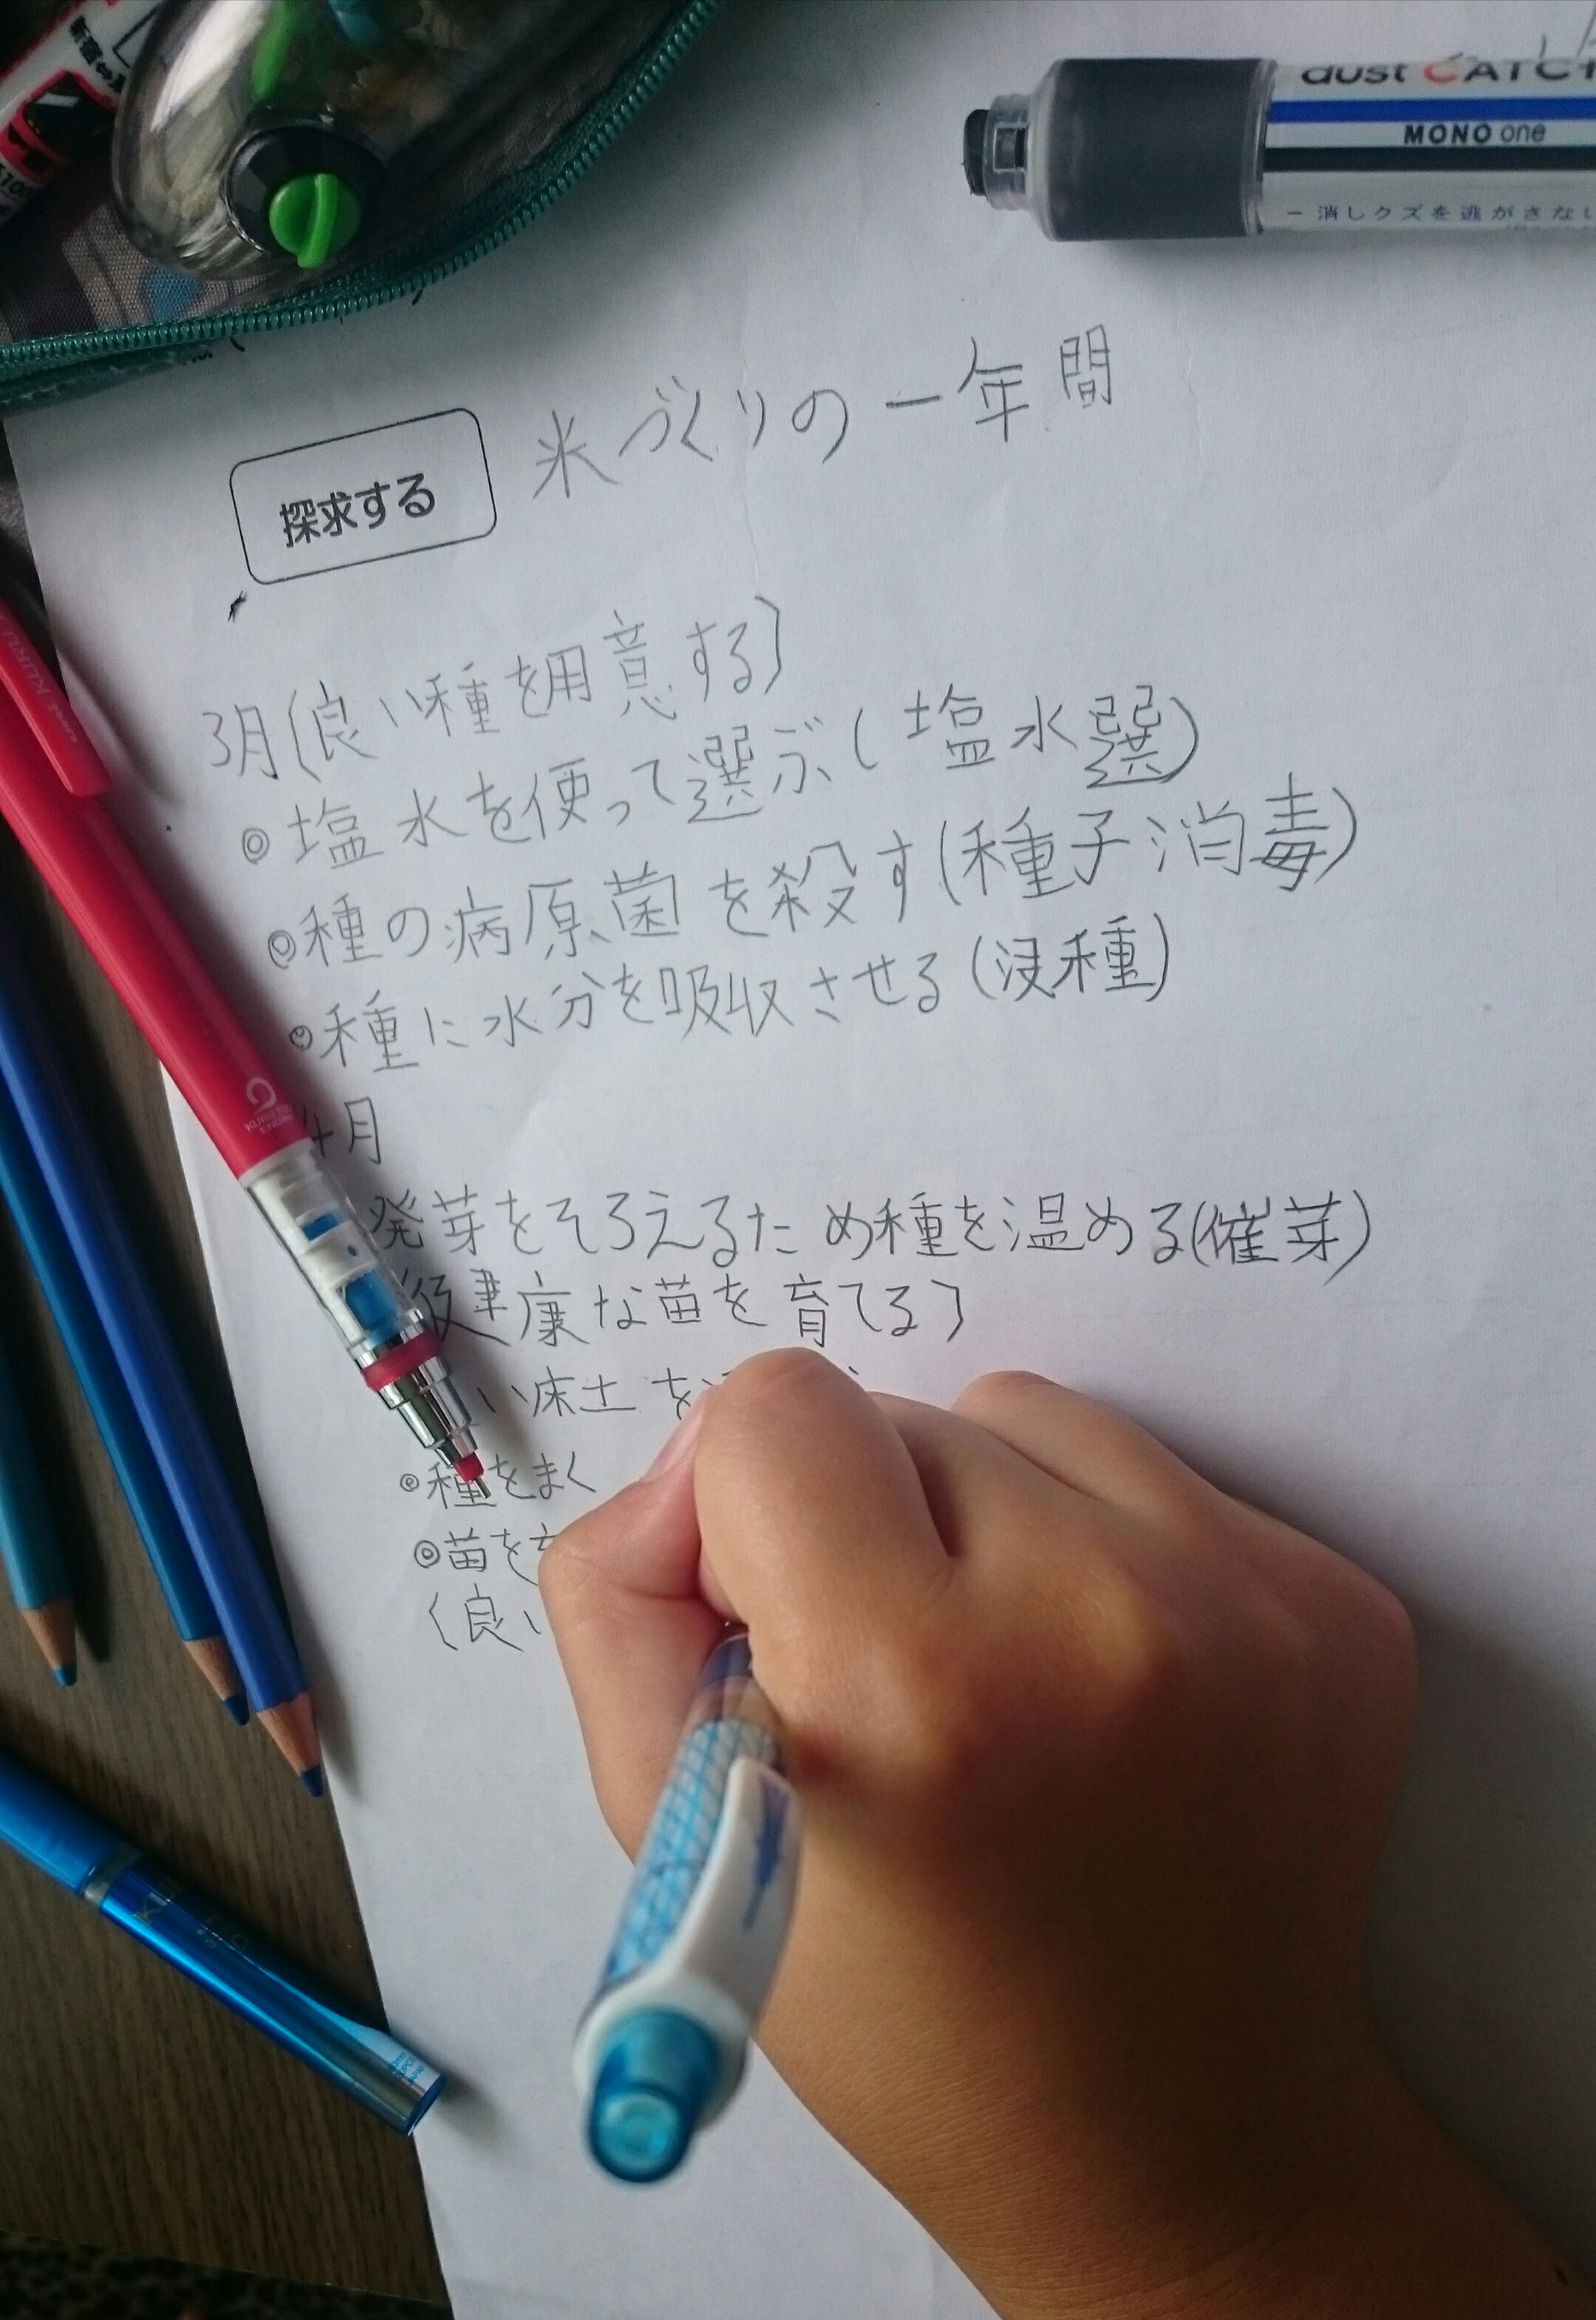 dust CATCH
MONO one
消しクズを逃がさない
探求する
米づくりの一年間
3月(良い種を用意する)
◎塩水を使って選ぶ(塩水選)
◎種の病原菌を殺す(種子消毒)
◎種に水分を吸収させる(浸種)
4月
発芽をそろえるため種を温める(催芽)
健康な苗を育てる)
い床土を
◎種をまく
◎苗を
(良い
KURU
KURU TOGA
ENGINE